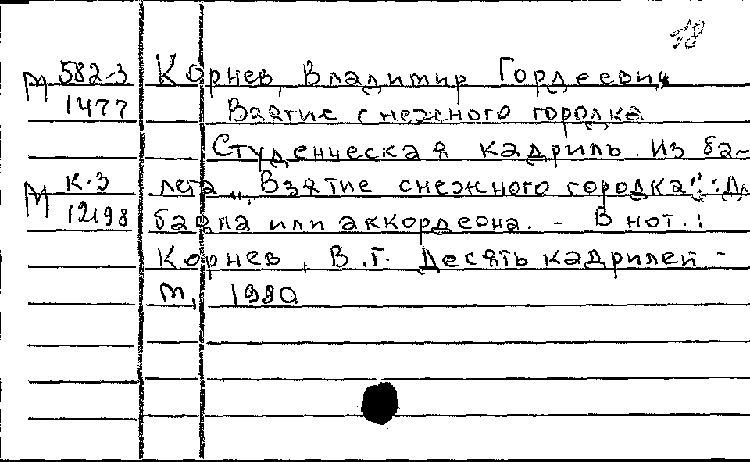 18
М 582-3 Корнев, Владимир Гордеевич
1477 Взятие снежного городка
Студенческая кадриль из ба-
М К-3 лета „Взятие снежного городка": Дл
12198 баяна или аккордеона. - В нот.:
Корнев, В.Г. Десять кадрилей -
М, 1980